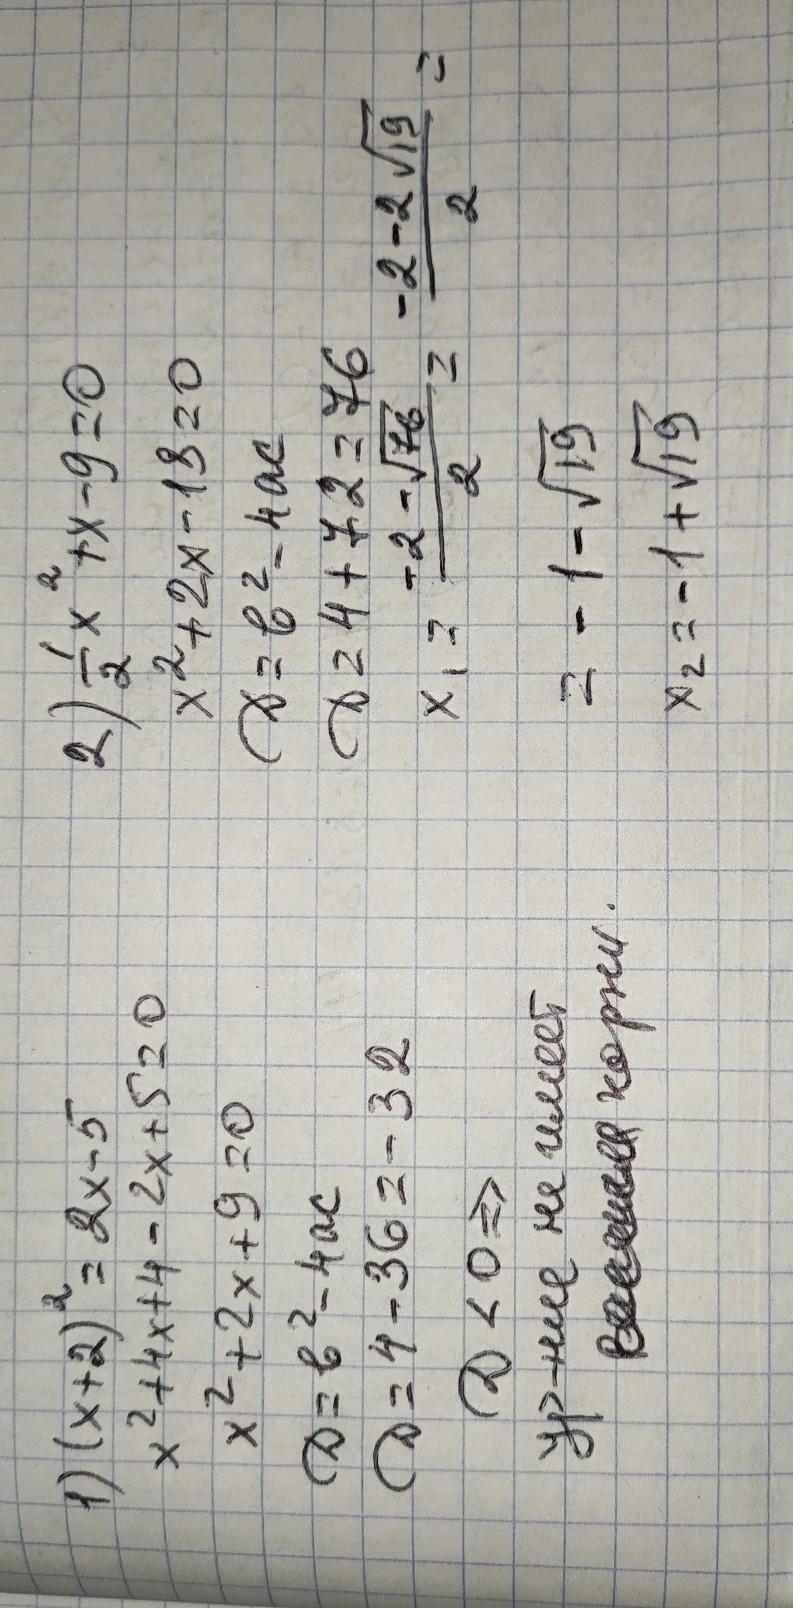 1) (x+2)² = 2x-5
x²+4x+4-2x+5=0
x²+2x+9=0
D=b²-4ac
D=4-36=-32
D<0 ⇒
ур-ние не имеет
корни.
2) 1/2 x²+x-9=0
x²+2x-18=0
D=b²-4ac
D=4+72=76
x₁ = (-2-√76)/2 = (-2-2√19)/2 =
= -1-√19
x₂=-1+√19